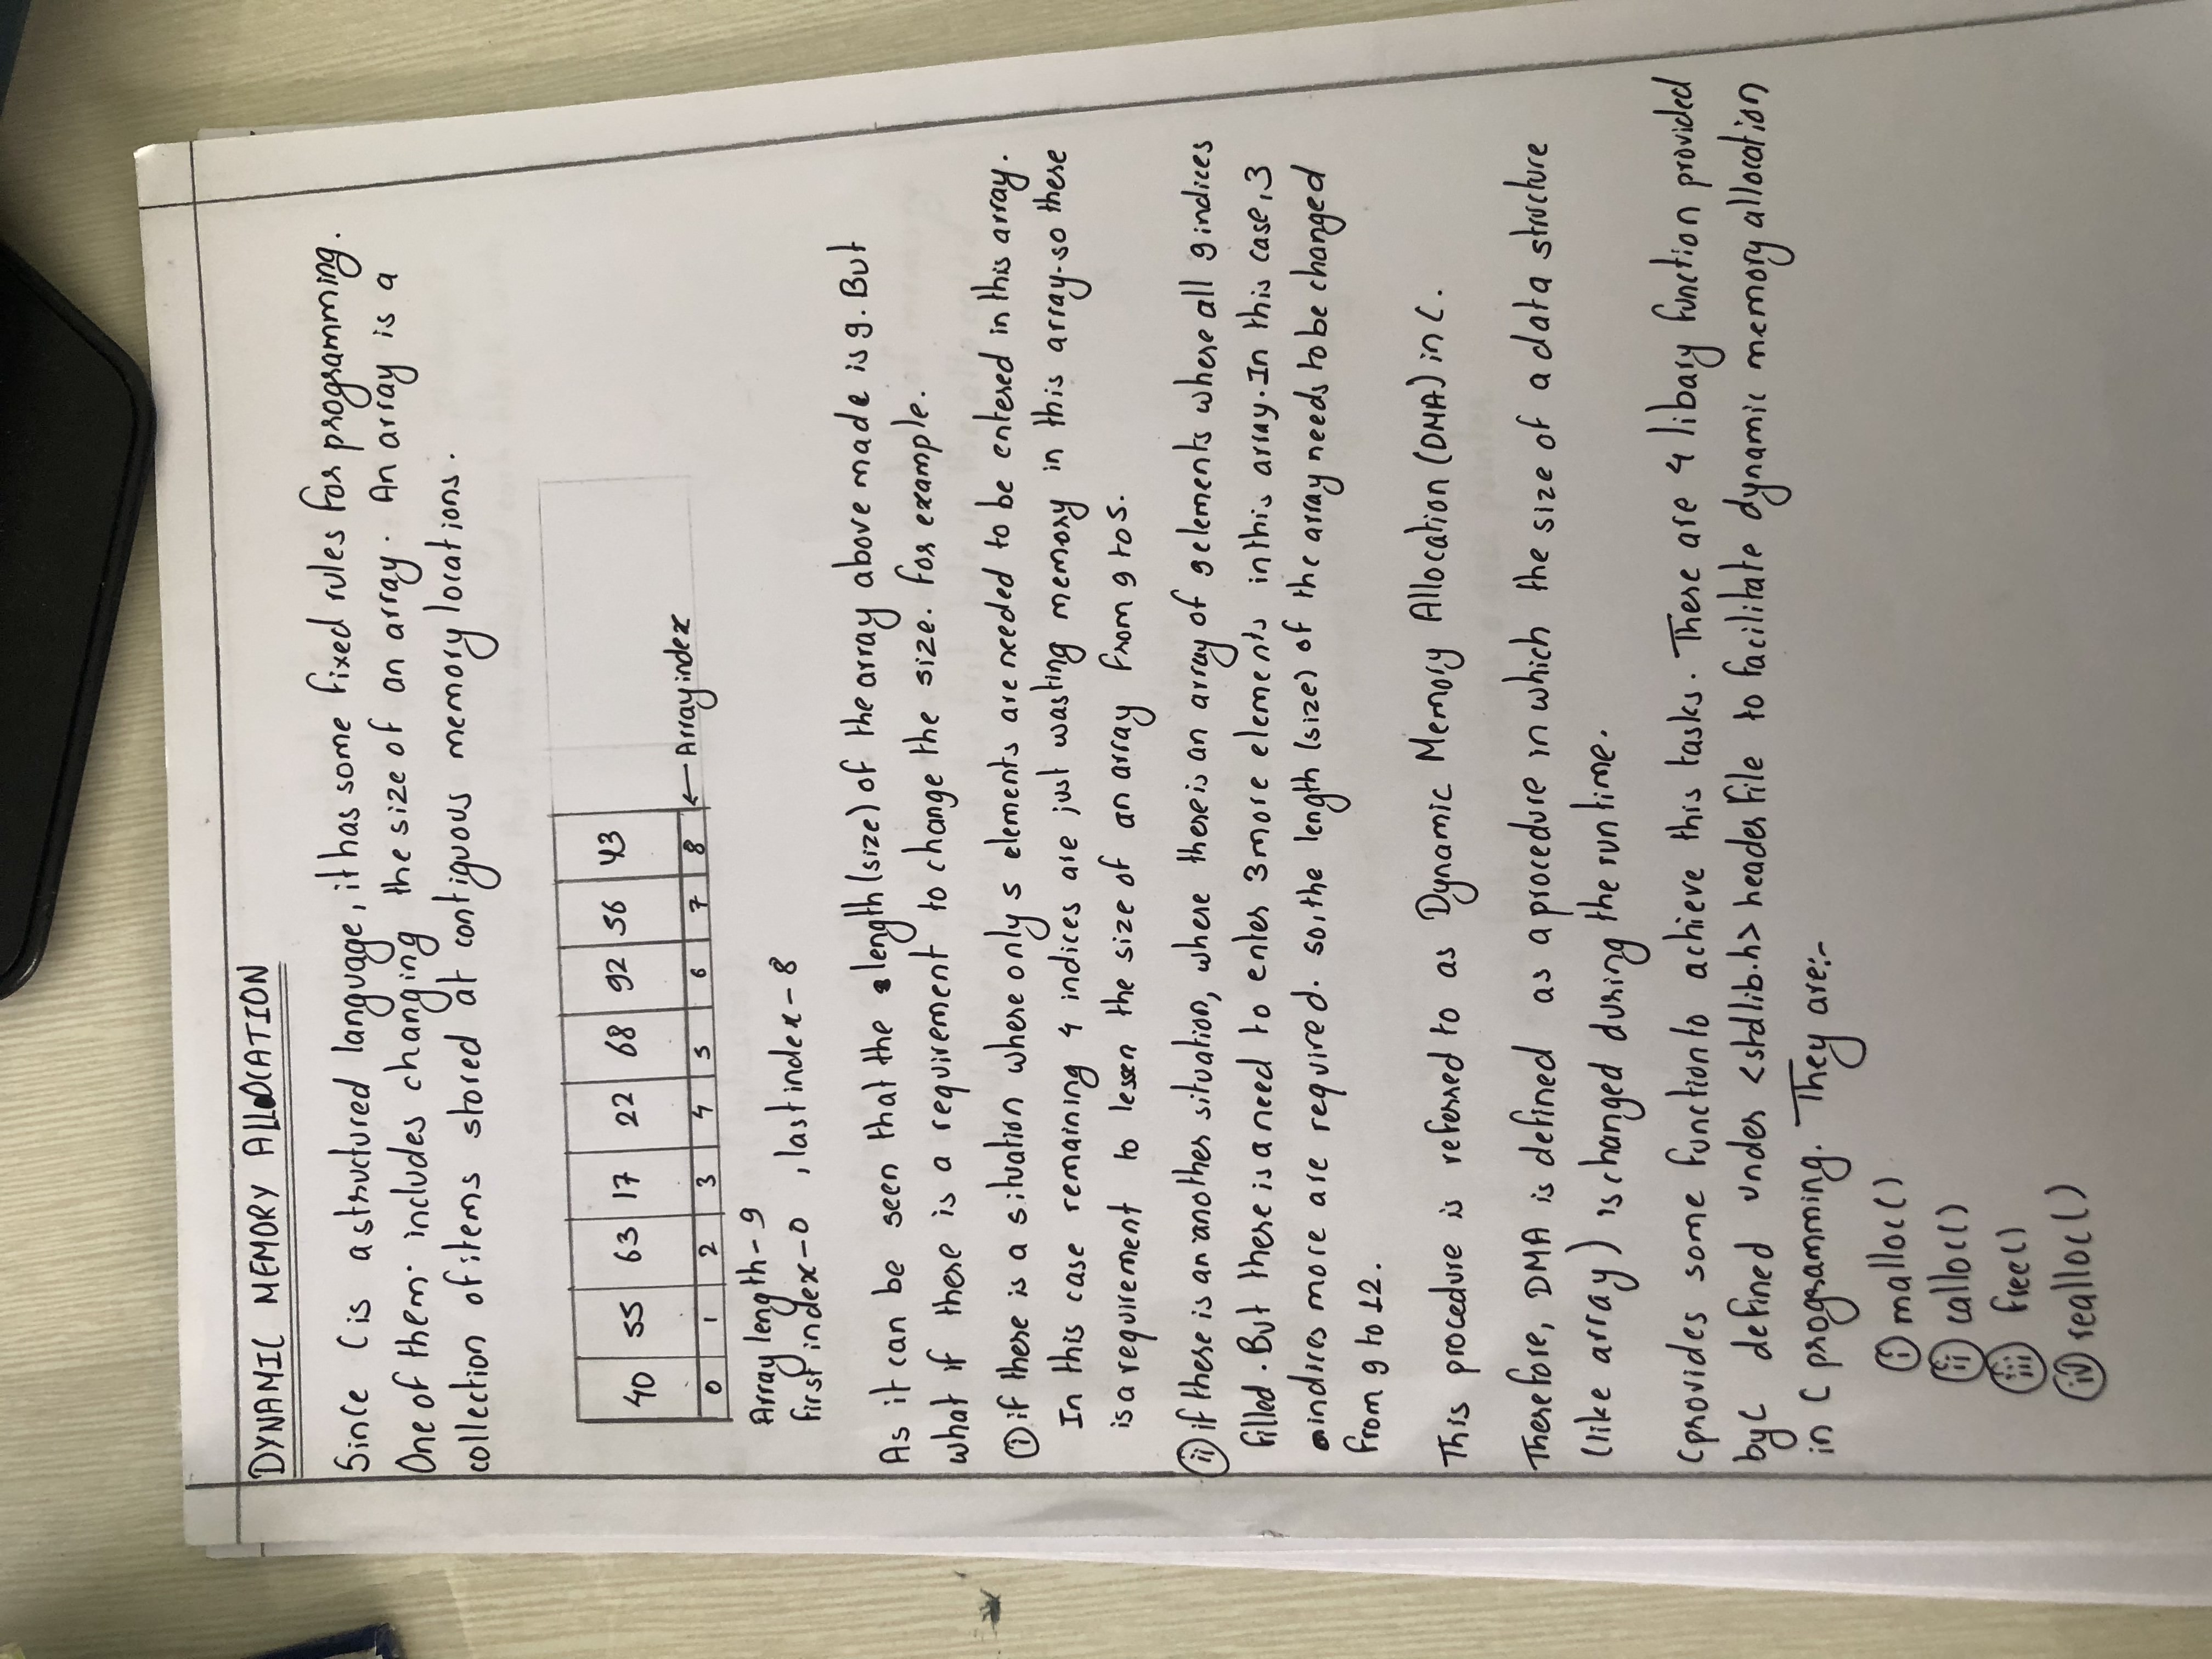 DYNAMIC MEMORY ALLOCATION
Since C is a structured language, it has some fixed rules for programming.
One of them includes changing the size of an array. An array is a
collection of items stored at contiguous memory locations.
40 55 63 17 22 68 92 56 43
0 1 2 3 4 5 6 7 8 ← Array index
Array length - 9
first index - 0 , last index - 8
As it can be seen that the length (size) of the array above made is 9. But
what if there is a requirement to change the size. For example.
(i) if there is a situation where only 5 elements are needed to be entered in this array.
In this case remaining 4 indices are just wasting memory in this array. so there
is a requirement to lessen the size of an array from 9 to 5.
(ii) if there is an another situation, where there is an array of 9 elements where all 9 indices
filled. But there is a need to enter 3 more elements in this array. In this case, 3
indices more are required. so, the length (size) of the array needs to be changed
from 9 to 12.
This procedure is referred to as Dynamic Memory Allocation (DMA) in C.
Therefore, DMA is defined as a procedure in which the size of a data structure
(like array) is changed during the run time.
C provides some function to achieve this tasks. There are 4 libary function provided
by C defined under <stdlib.h> header file to facilitate dynamic memory allocation
in C programming. They are:-
(i) malloc()
(ii) calloc()
(iii) free()
(iv) realloc()